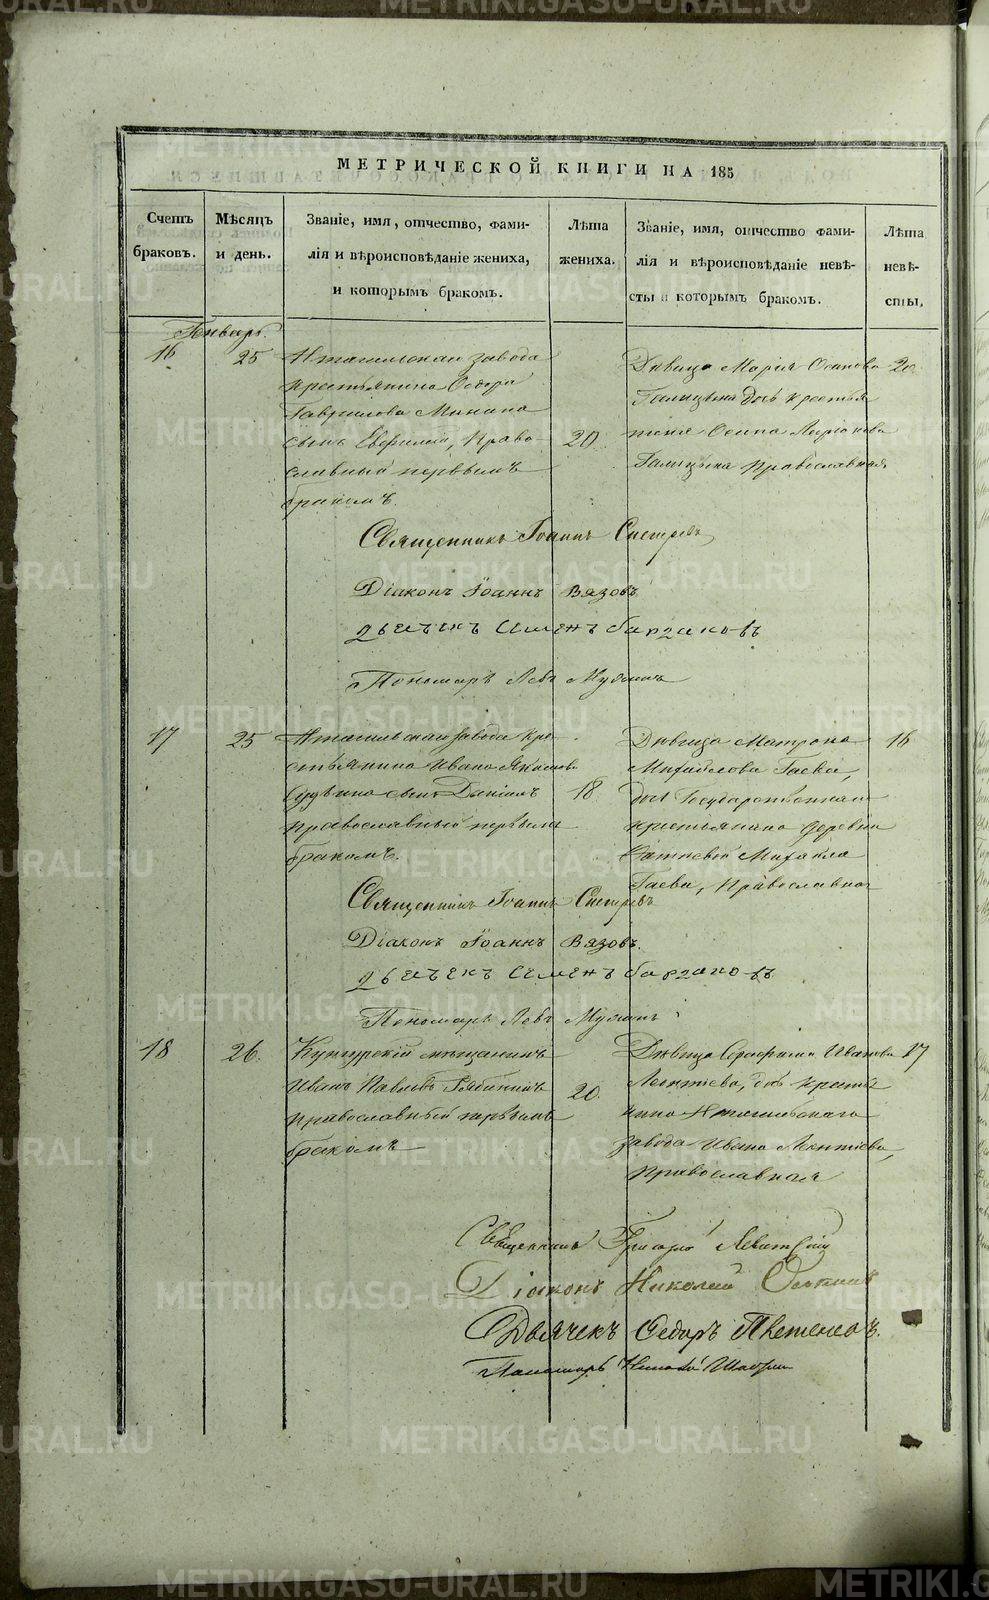 МЕТРИЧЕСКОЙ КНИГИ НА 185
Счетъ браковъ.
Мѣсяцъ и день.
Званіе, имя, отчество, фами-
лія и вѣроисповѣданіе жениха,
и которымъ бракомъ.
Лѣта жениха.
Званіе, имя, отчество фами-
лія и вѣроисповѣданіе невѣ-
сты и которымъ бракомъ.
Лѣта невѣ-
сты.
Январь.
16 25
Нтагильскаго завода
крестьянина Ѳедора
Гаврилова Минина
сынъ Евфимій, право-
славный первымъ
бракомъ.
20.
Дѣвица Марія Осипова
Галицына дочь крестья
нина Осипа
Галицына православная
20.
Священникъ Іоаннъ
Діаконъ Іоаннъ Вязовъ
дьячекъ Семенъ
Пономарь Левъ
17 25
Нтагильскаго завода кре
стьянина Ивана
сынъ Даніилъ
православный первымъ
бракомъ.
18
Дѣвица Матрона
Михайлова Гаева,
дочь Государственнаго
крестьянина деревни
Михайла
Гаева, православная
16
Священникъ Іоаннъ
Діаконъ Іоаннъ Вязовъ.
дьячекъ Семенъ
Пономарь Левъ
18 26.
Кунгурскій мѣщанинъ
Иванъ Павловъ Рябининъ
православный первымъ
бракомъ
20.
Дѣвица Серафима Иванова
Леонтіева, дочь крестья
нина Нтагильскаго
завода Ивана Леонтіева,
православная
17
Священникъ Григорій Левитскій
Діаконъ Николай
Дьячекъ Ѳедоръ
Пономарь Николай
METRIKI.GASO-URAL.RU